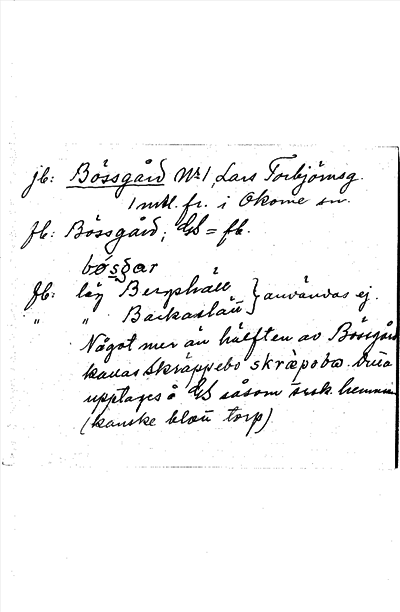 jb: Bössgård № 1, Lars Torbjörnsg.
1 mtl. fr. i Okome sn.
fb: Bössgård; GS = fb.
bøsgar
fb: läg Bergshäll } användas ej.
" " Backaslätt
Något mer än hälften av Bössgård
kallas Skräppebo skräpobo. Detta
upptages å GS såsom särsk. hemman
(kanske blott torp)